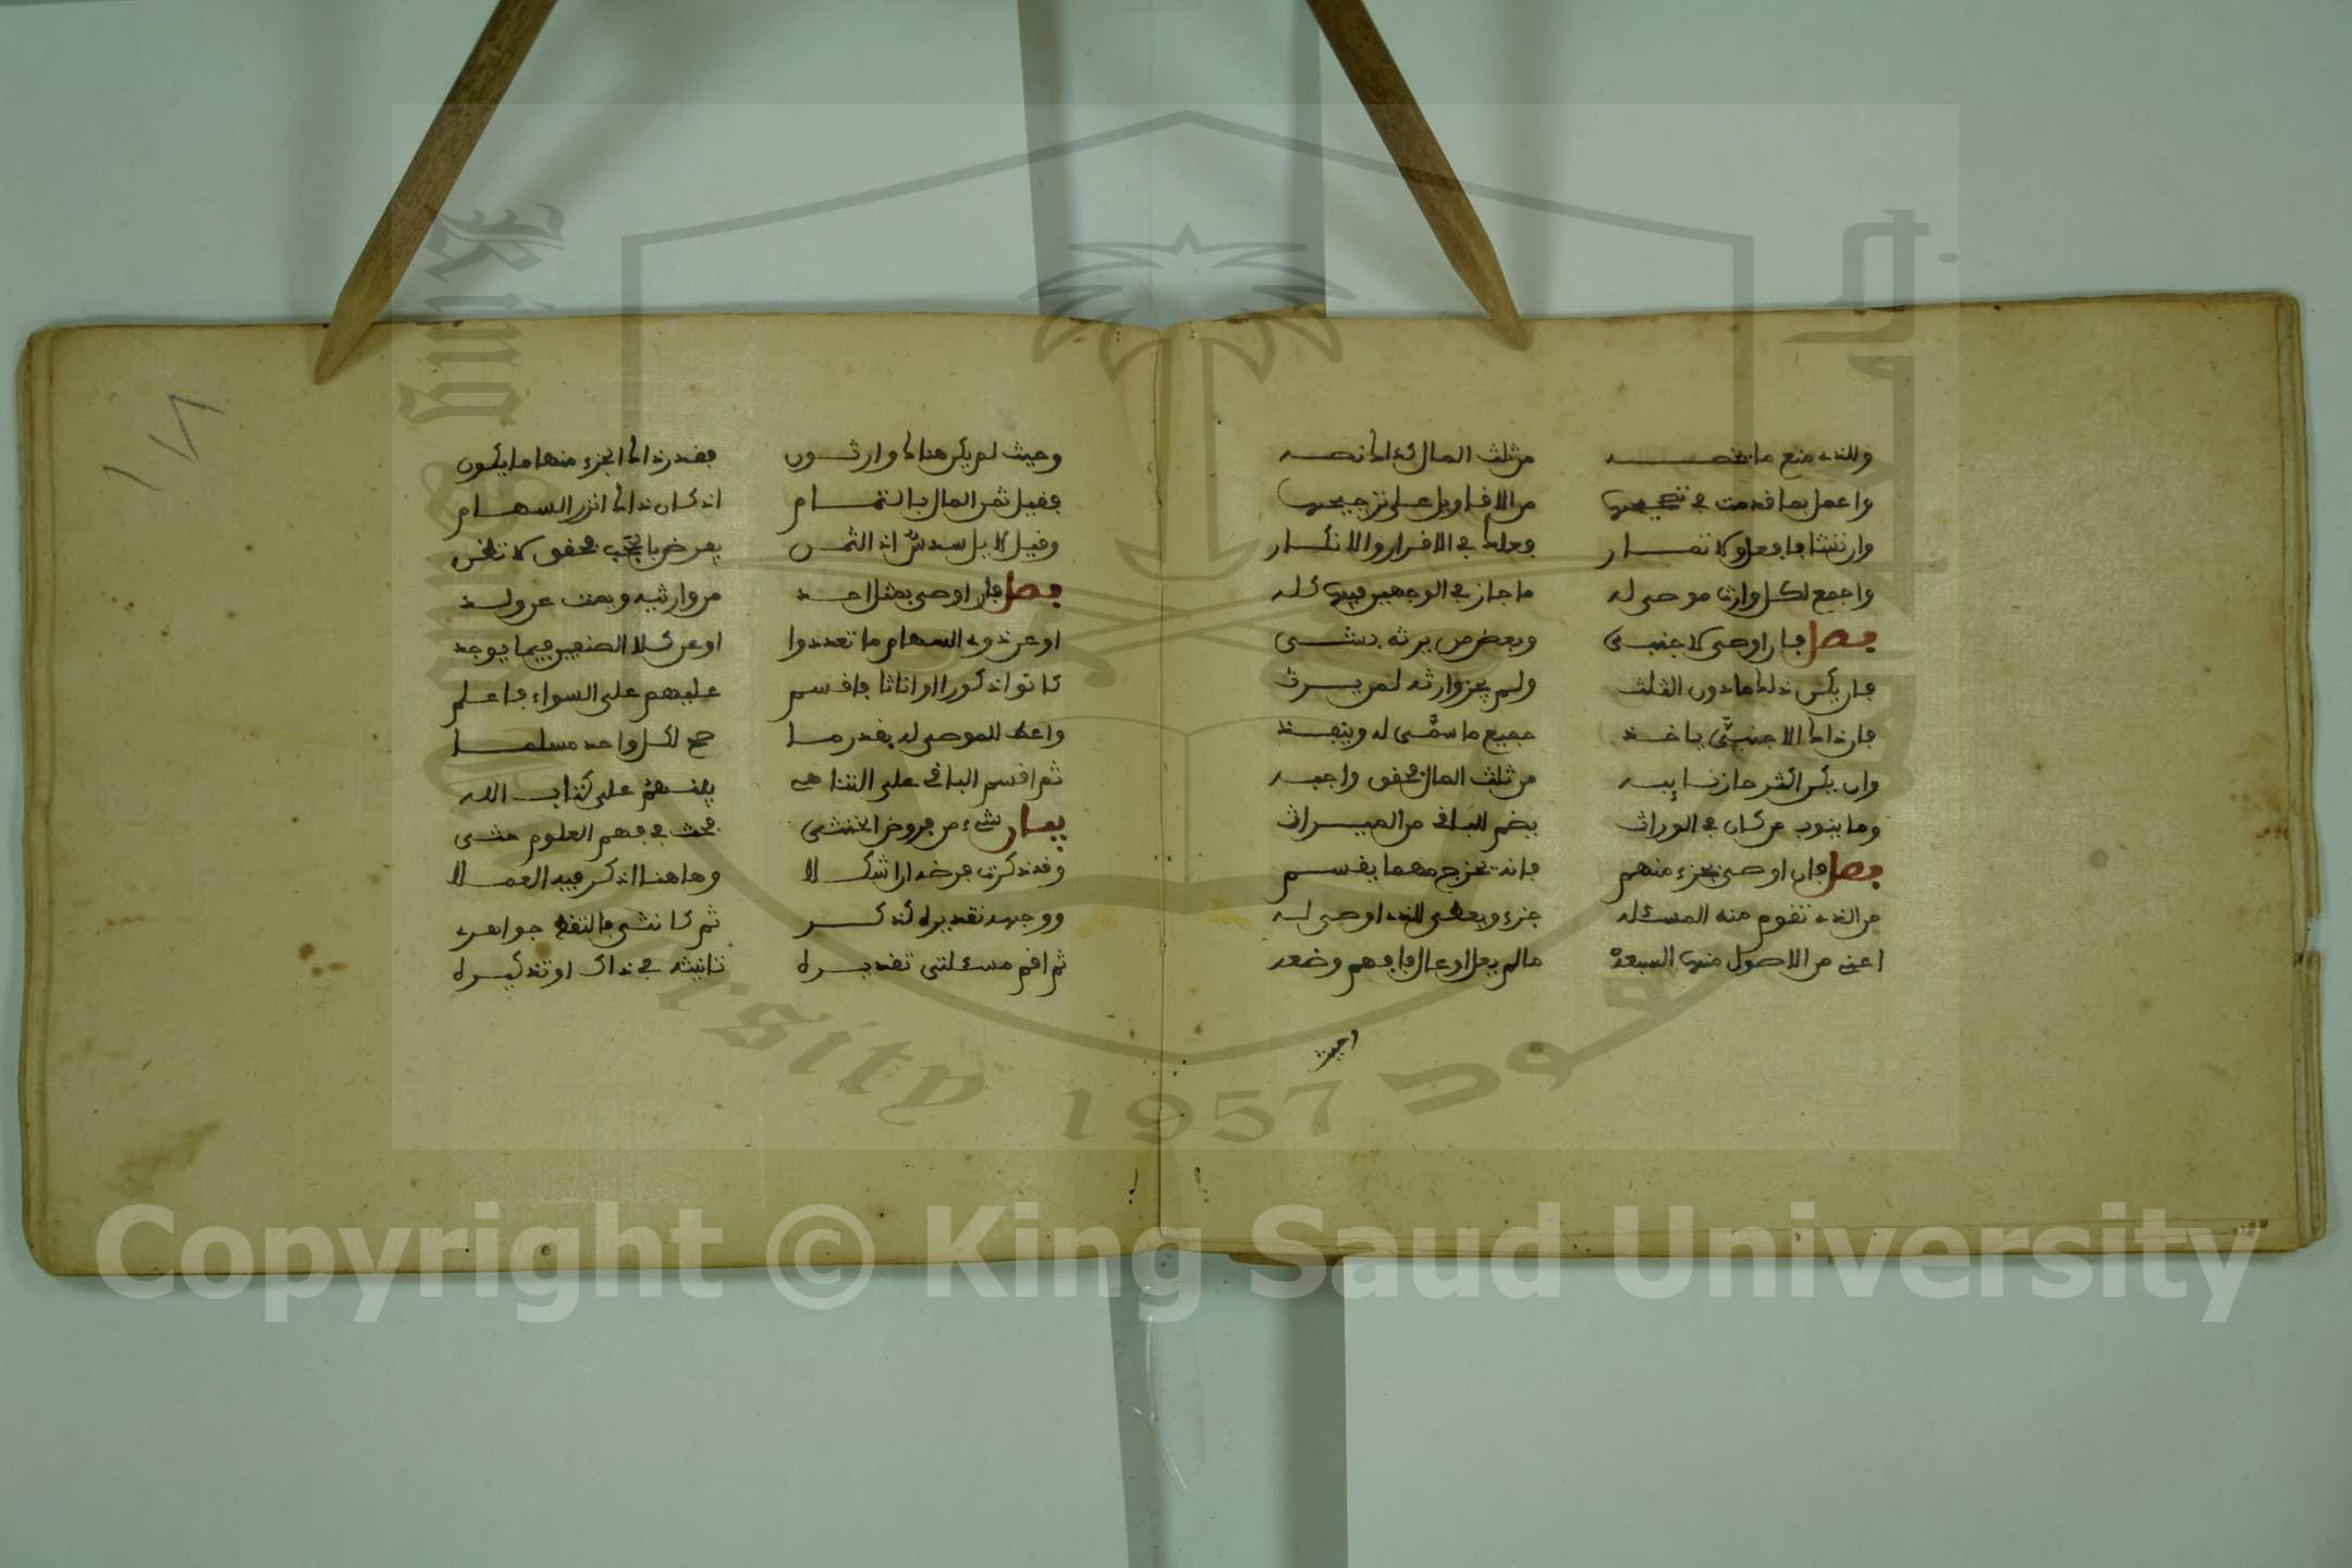 وللذي منع ما يخصه من ثلث المال كذاك نصه
واعمل بما قدمت في تصحيحها من الاقاويل على ترجيحها
وان تشا فافعل ولا تمار فعلك في الاقرار والانكار
واجمع لكل وارث موصى له ما جاز في الوجهين فيها كله
فصل فان اوصى لاجنبي وبعض من يرثه بشي
فان يكن ذلك ما دون الثلث ولم يجز وارثه لمن يرث
فان ذاك الاجنبي ياخذ جميع ما سمى له وينفذ
وان يكن اكثر حاز نايبه من ثلث المال فحقق واجبه
وما ينوب من كان في الوراث يضم للباقي من الميراث
فصل فان اوصى بجزء منهم فانه يخرج مهما يقسم
من الذي تقوم منه المسئله جزء ويعطى للذي اوصى له
اعني من الاصول منها السبعة ما لم يعل او عال فافهم وضعه
وحيث
وحيث لم يكن هناك وارثون فقدر ذاك الجزء منها ما يكون
فقيل ثمن المال بالتمام اذ كان ذاك انزر السهام
وقيل لا بل سدس اذ الثمن يعرض بالحجب فحقق لا تظن
فصل فان اوصى بمثل احد من وارثيه ويمت عن ولد
او عن ذوي السهام ما تعددوا او عن كلا الصنفين فيما يوجد
كانوا ذكورا او اناثا فاقسم عليهم على السواء فاعلم
واعط للموصى له بقدر ما صح لكل واحد مسلما
ثم اقسم الباقي على التناهي بينهم على كتاب الله
بيان شيء من فروض الخنثى بحث في فهم العلوم حثى
وقد ذكرت فرضه ان اشكلا وهاهنا اذكر فيه العملا
ووجهه تقديره كذكر ثم كانثى فالتقط جواهري
ثم اقم مسئلتي تقديره تانيثه في ذاك او تذكيره